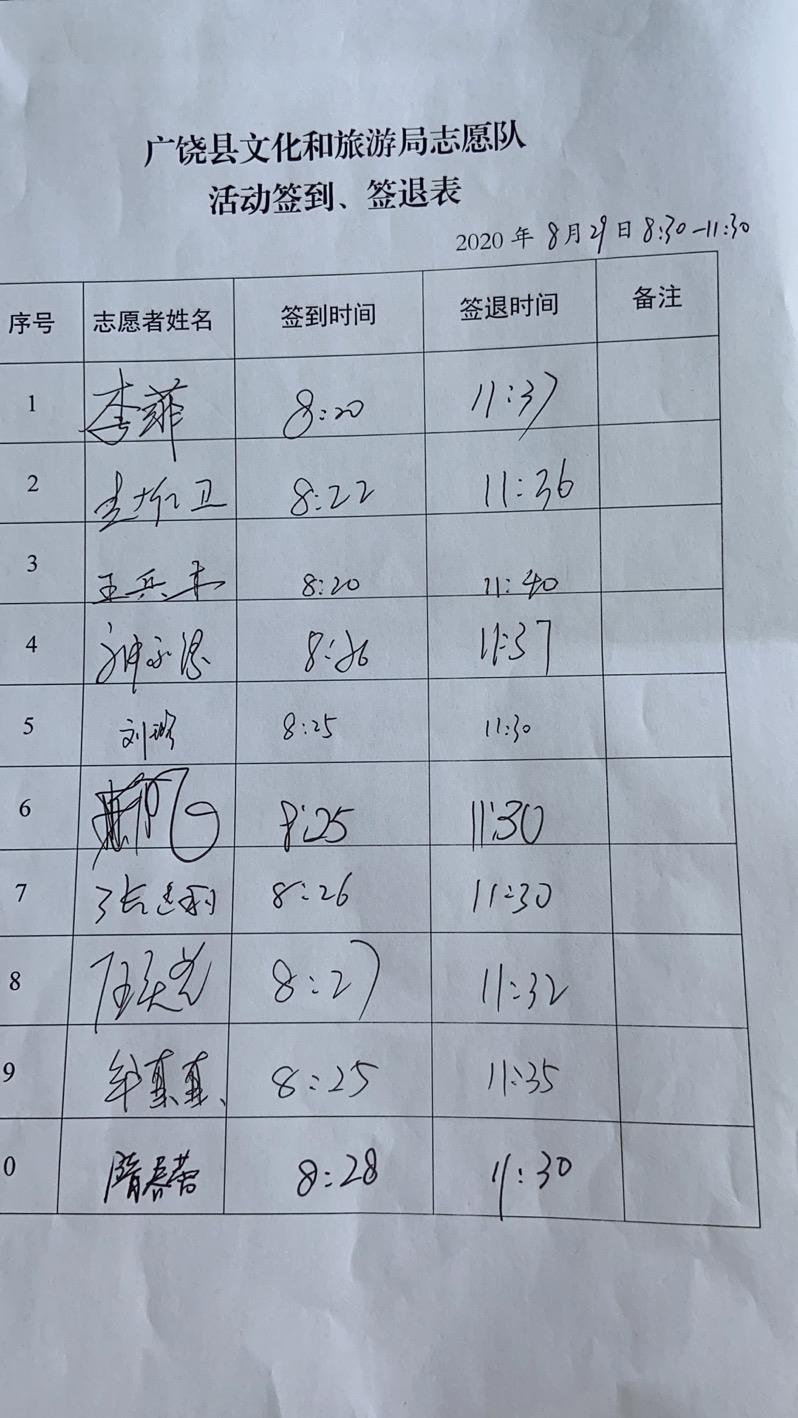 广饶县文化和旅游局志愿队
活动签到、签退表
2020 年 8 月 29 日 8:30-11:30
序号 志愿者姓名 签到时间 签退时间 备注
1 李菲 8:20 11:37
2 8:22 11:36
3 王兵 8:20 11:40
4 11:37
5 刘 8:25 11:30
6 8:25 11:30
7 张 8:26 11:30
8 8:27 11:32
9 牟真真 8:25 11:35
0 隋春蕾 8:28 11:30